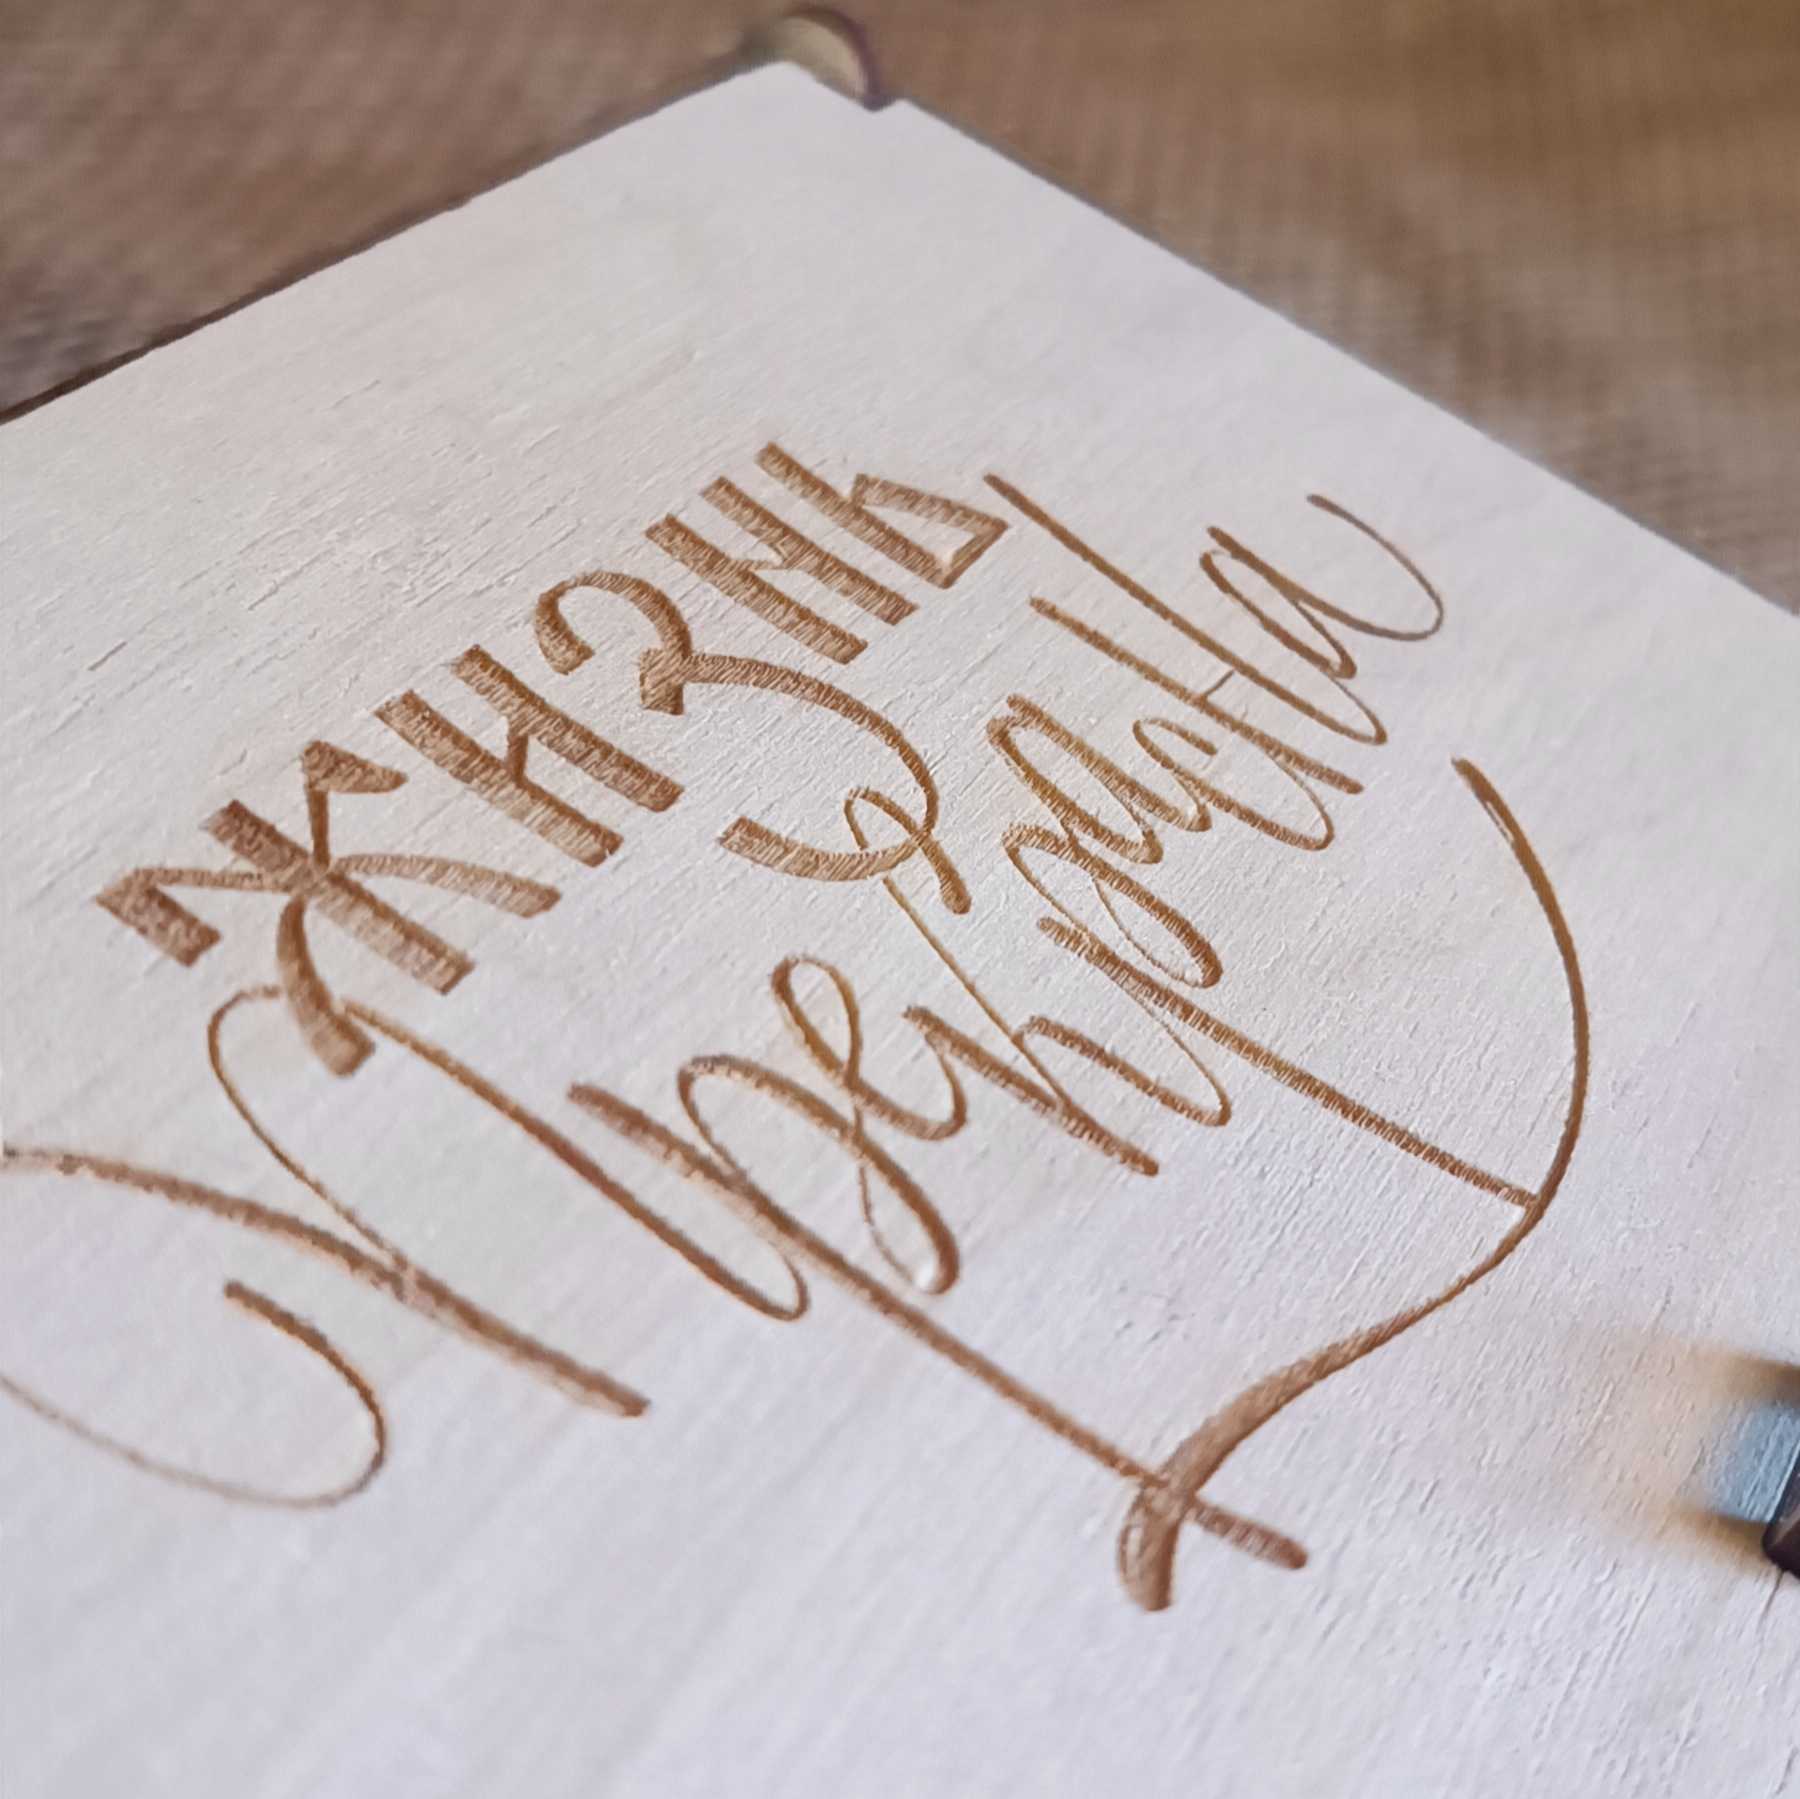 жизнь
прекрасна